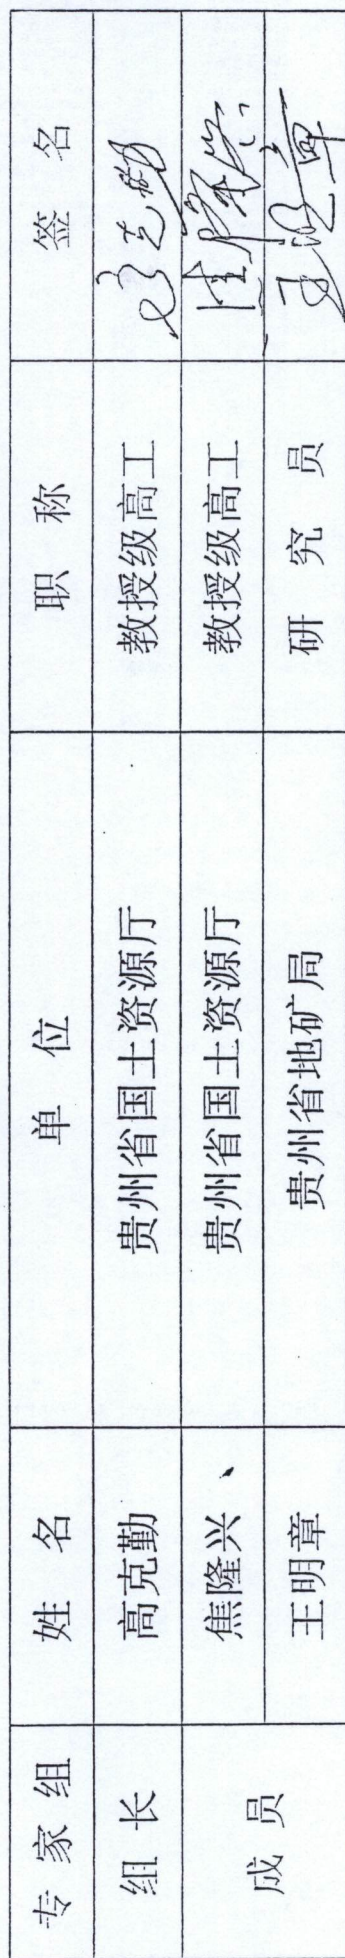 专家组 姓名 单位 职称 签名
组长 高克勤 贵州省国土资源厅 教授级高工 高克勤
成员 焦隆兴 贵州省国土资源厅 教授级高工 焦隆兴
王明章 贵州省地矿局 研究员 王明章